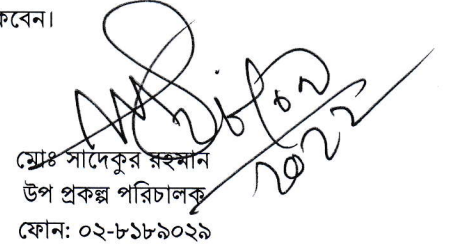 কবেন।
২০২২
মোঃ সাদেকুর রহমান
উপ প্রকল্প পরিচালক
ফোন: ০২-৮১৮৯০২৯